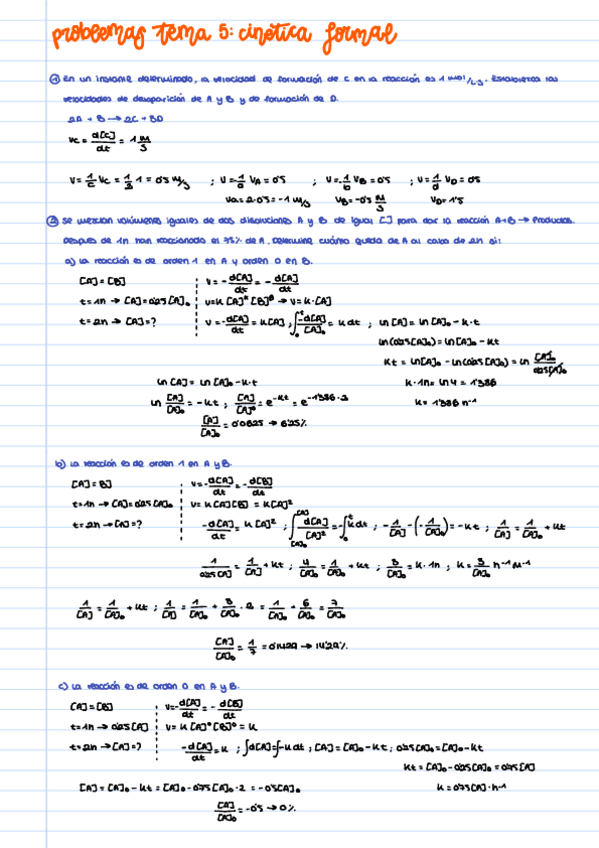 problemas tema 5: cinética formal
① En un instante determinado, la velocidad de formación de C en la reacción es 1 mol/L·s. Establezca las
velocidades de desaparición de A y B y de formación de D.
2A + B → 2C + 3D
vc = d[C]/dt = 1 M/s
v = 1/c vc = 1/2 1 = 0'5 M/s ; v = -1/a vA = 0'5 ; v = -1/b vB = 0'5 ; v = 1/d vD = 0'5
vA = 2·0'5 = -1 M/s vB = -0'5 M/s vD = 1'5
② Se mezclan volúmenes iguales de dos disoluciones A y B de igual [ ] para dar la reacción A+B → Productos.
Después de 1h han reaccionado el 75% de A. Determine cuánto queda de A al cabo de 2h si:
a) La reacción es de orden 1 en A y orden 0 en B.
[A] = [B] v = -d[A]/dt = -d[A]/dt
t = 1h → [A] = 0'25[A]₀ v = K [A]ᵅ [B]ᵝ → v = K·[A]
t = 2h → [A] = ? v = -d[A]/dt = K[A] ; ∫₀ᵗ -d[A]/[A]₀ = K dt ; ln [A] = ln [A]₀ - K·t
ln(0'25[A]₀) = ln[A]₀ - Kt
Kt = ln[A]₀ - ln(0'25[A]₀) = ln [A]₀/0'25[A]₀
ln [A] = ln [A]₀ - K·t K·1h = ln 4 = 1'386
ln [A]/[A]₀ = -Kt ; [A]/[A]⁰ = e^-Kt = e^-1'386·2 K = 1'386 h⁻¹
[A]/[A]₀ = 0'0625 → 6'25%
b) La reacción es de orden 1 en A y B.
[A] = B] v = -d[A]/dt = -d[B]/dt
t = 1h → [A] = 0'25[A]₀ v = K [A][B] = K[A]²
t = 2h → [A] = ? -d[A]/dt = K [A]² ; ∫[A]₀^[A] d[A]/[A]² = -∫₀ᵗ K dt ; -1/[A] - (-1/[A]₀) = -Kt ; 1/[A] = 1/[A]₀ + Kt
1/0'25[A] = 1/[A]₀ + Kt ; 4/[A]₀ = 1/[A]₀ + Kt ; 3/[A]₀ = K·1h ; K = 3/[A]₀ h⁻¹ M⁻¹
1/[A] = 1/[A]₀ + Kt ; 1/[A] = 1/[A]₀ + 3/[A]₀ · 2 = 1/[A]₀ + 6/[A]₀ = 7/[A]₀
[A]/[A]₀ = 1/7 = 0'1429 → 14'29%
c) La reacción es de orden 0 en A y B.
[A] = [B] v = -d[A]/dt = -d[B]/dt
t = 1h → 0'25[A] v = K [A]⁰ [B]⁰ = K
t = 2h → [A] = ? -d[A]/dt = K ; ∫d[A] = ∫-K dt ; [A] = [A]₀ - Kt ; 0'25[A]₀ = [A]₀ - Kt
Kt = [A]₀ - 0'25[A]₀ = 0'75[A]
[A] = [A]₀ - Kt = [A]₀ - 0'75[A]₀ · 2 = -0'5[A]₀ K = 0'75[A]·h⁻¹
[A]/[A]₀ = -0'5 → 0%